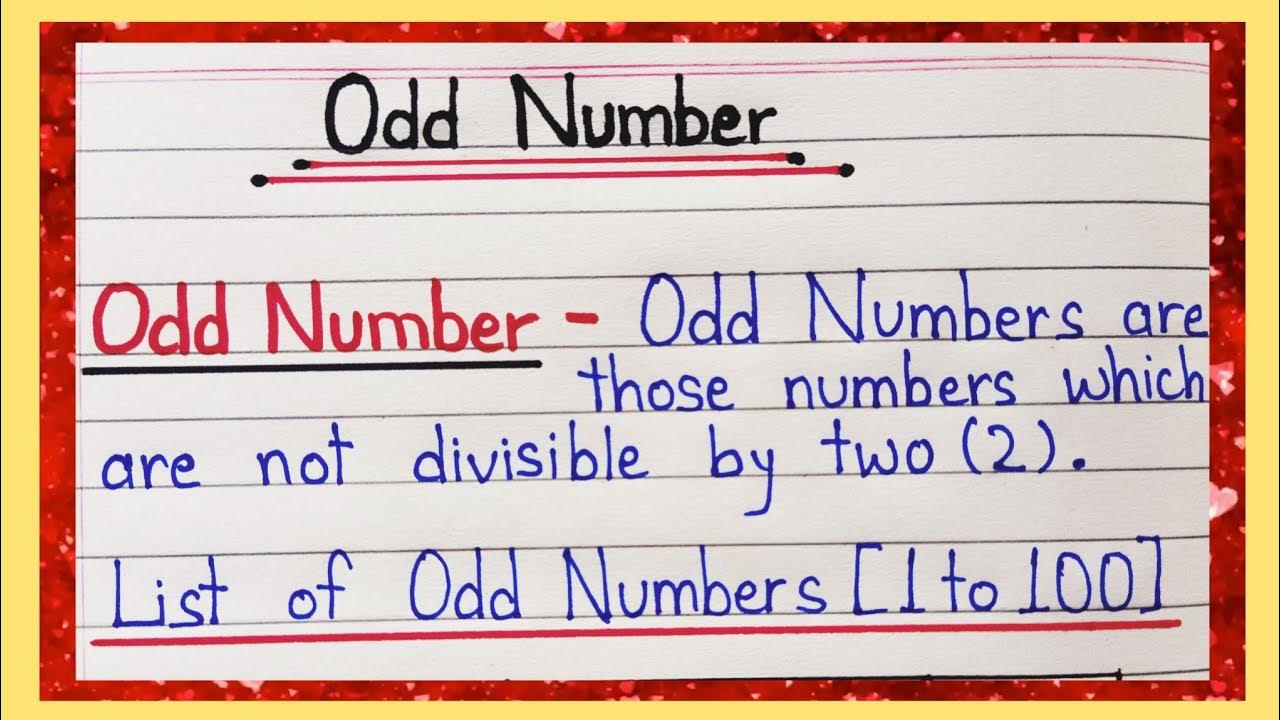 Odd Number
Odd Number - Odd Numbers are
those numbers which
are not divisible by two (2).
List of Odd Numbers [1 to 100]